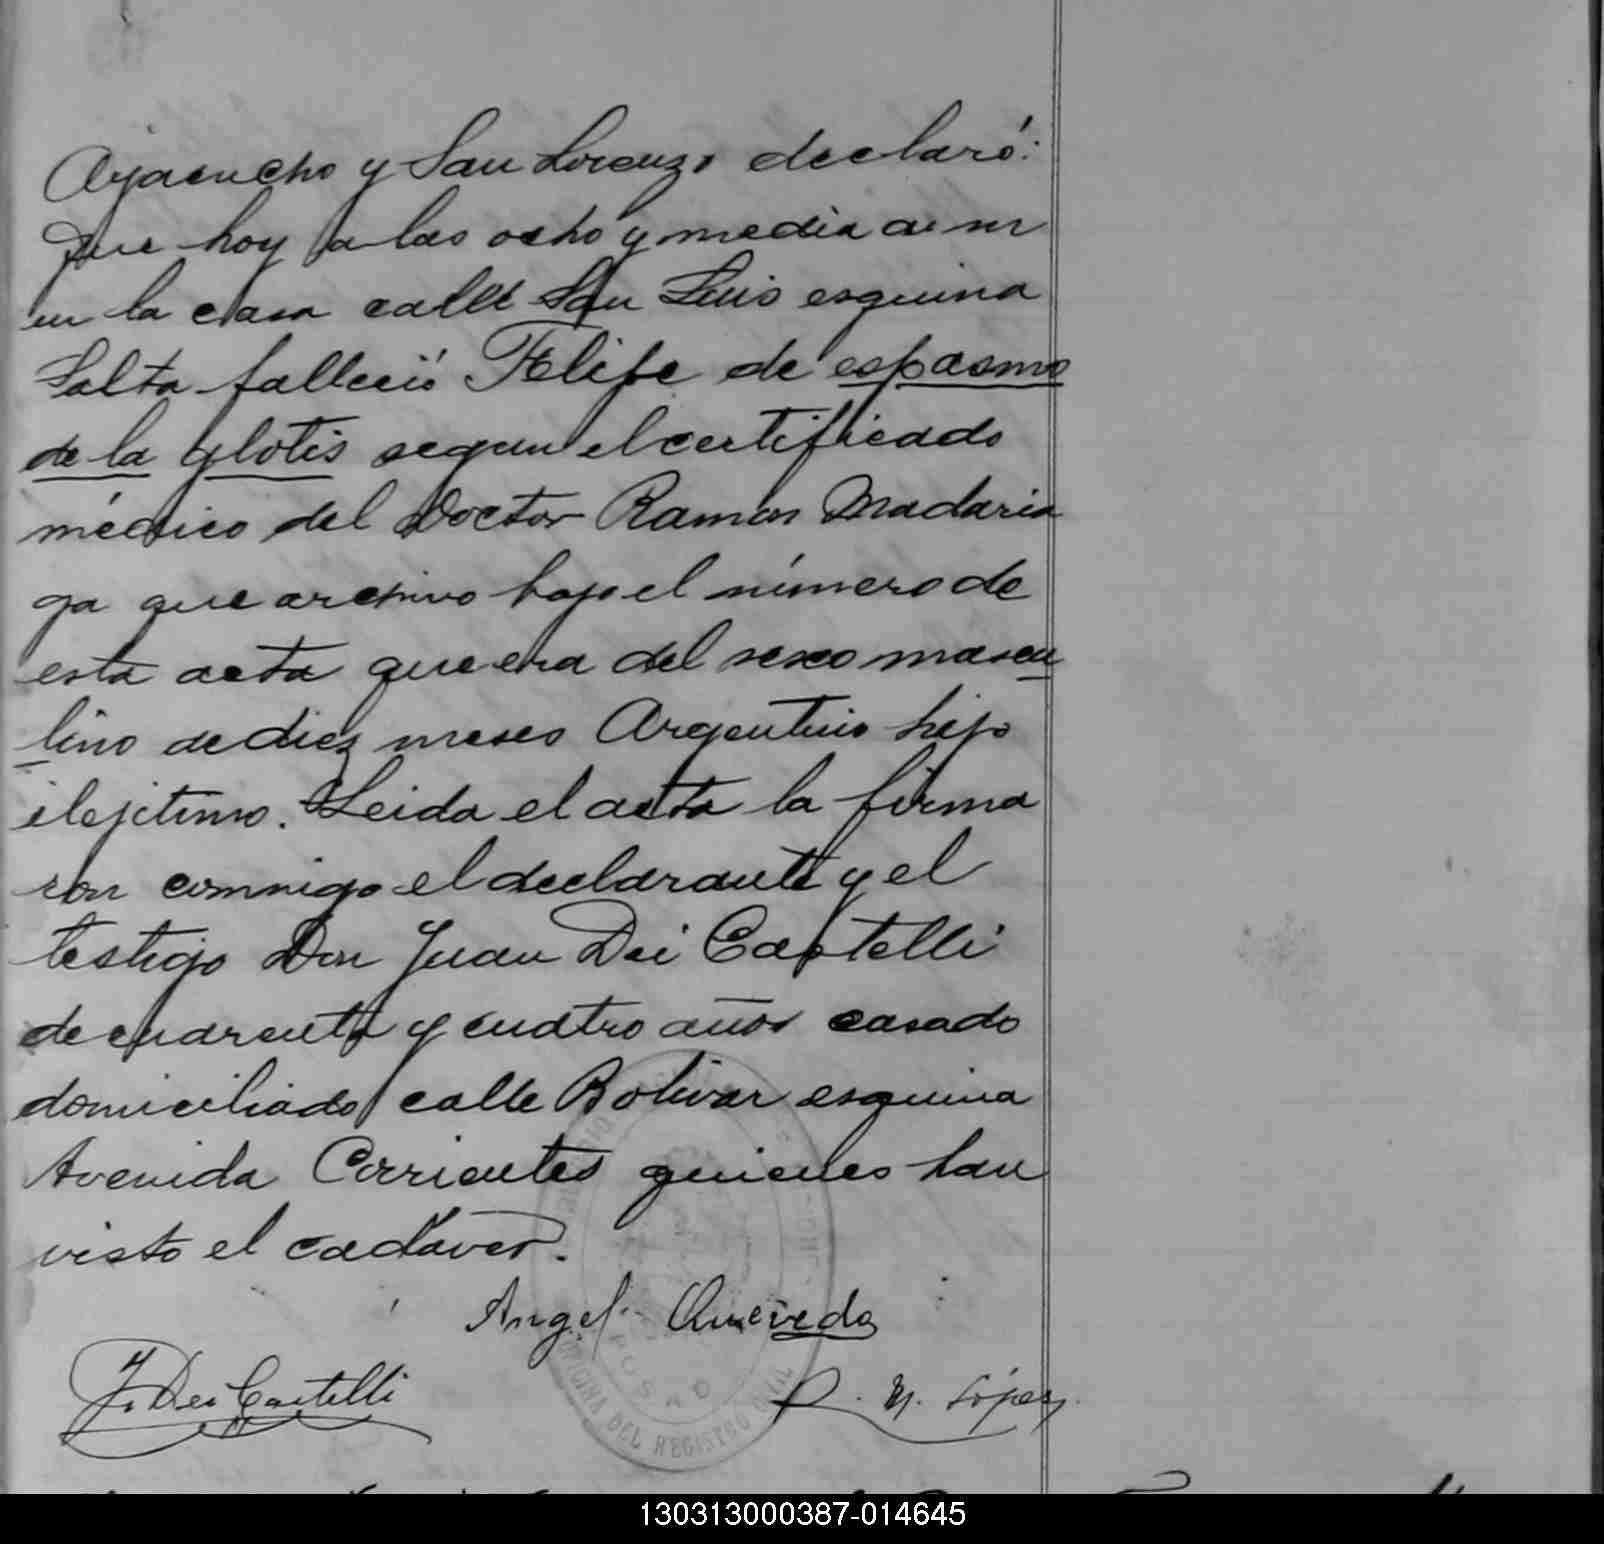 Ayacucho y San Lorenzo declaró:
Que hoy a las ocho y media a. m
en la casa calle San Luis esquina
Salta falleció Felipe de espasmo
de la glotis segun el certificado
médico del Doctor Ramon Madaria
ga que archivo bajo el número de
esta acta que era del sexo mascu
lino de diez meses Argentino hijo
ilejitimo. Leida el acta la firma
ron conmigo el declarante y el
testigo Don Juan Dei Castelli
de cuarenta y cuatro años casado
domiciliado calle Bolivar esquina
Avenida Corrientes quienes han
visto el cadaver.
Angel Quevedo
J. Dei Castelli
R. M. López
OFICINA DEL REGISTRO CIVIL
POSAD
130313000387-014645